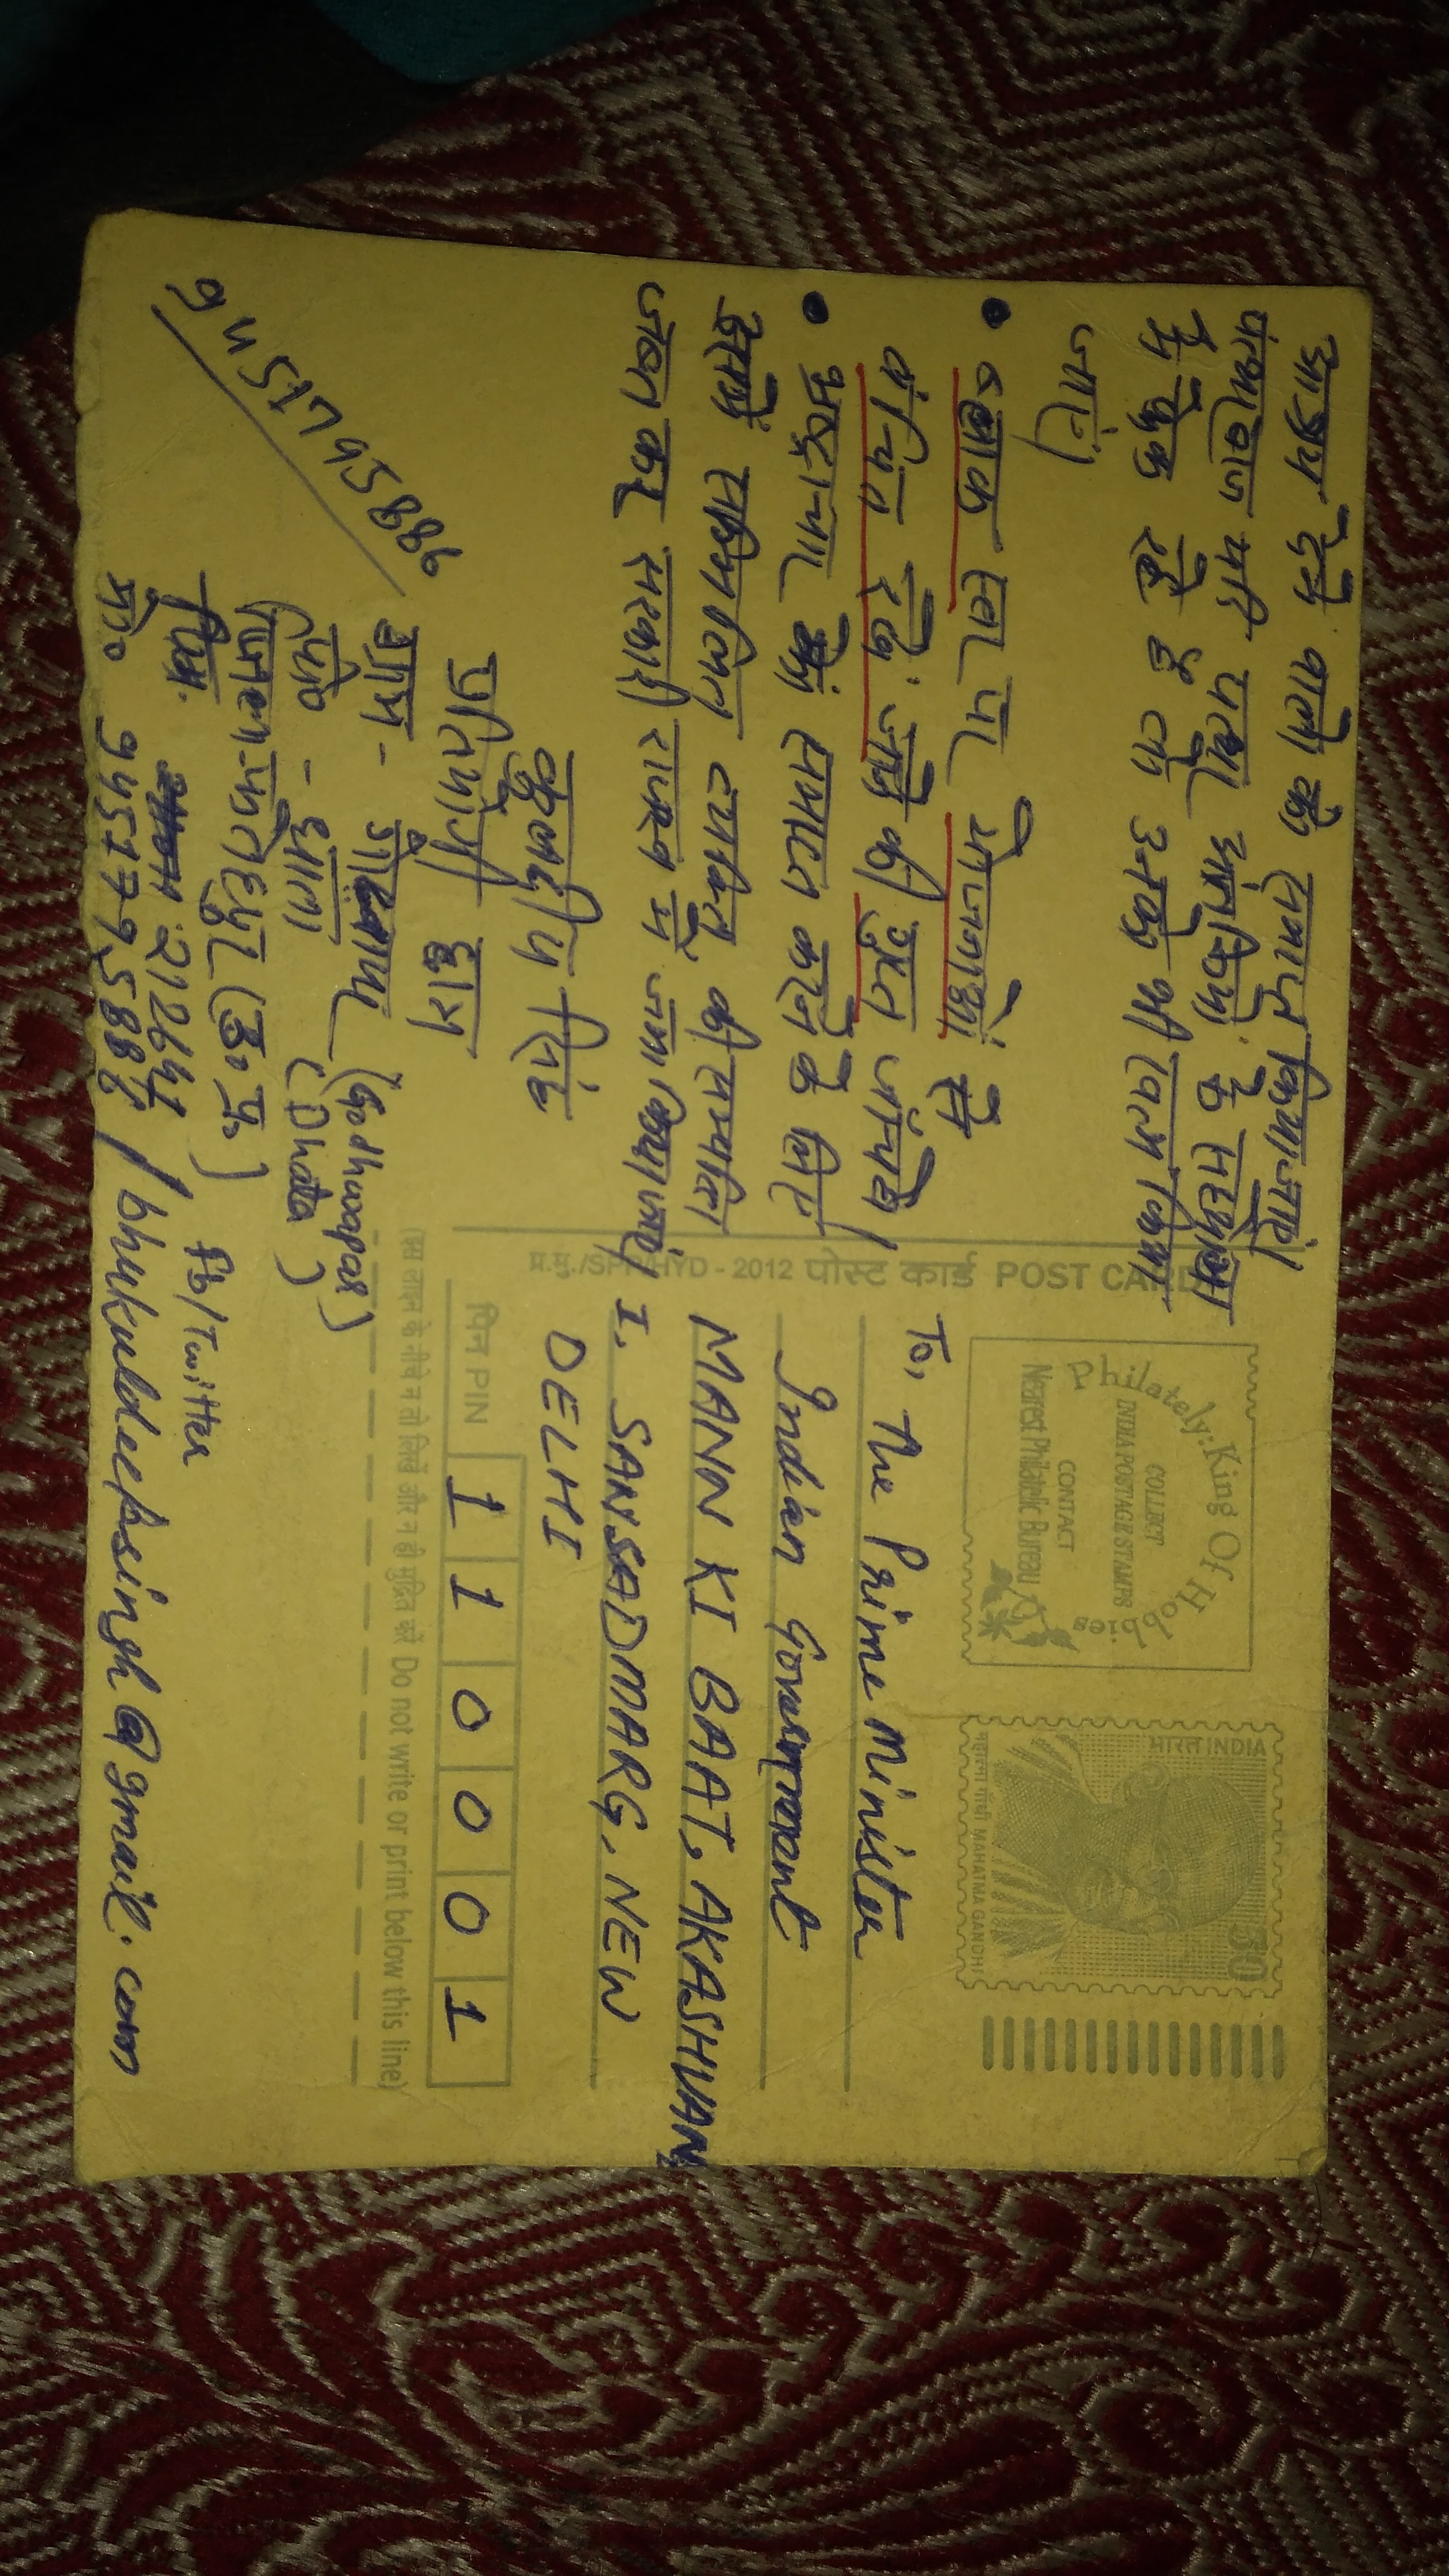 आश्रय देने वालो को समाप्त किया जाएं।
पत्थरबाज यदि पत्थर आतंकियो के सहयोग
में फेंक रहे है तो उनको भी खत्म किया
जाएं
• ब्लाक स्तर पर योजनाओं से
वंचित रखे जाने की गुप्त जॉच हो।
• भ्रष्टाचार को समाप्त करने के लिए
उसमें सम्मिलित व्यक्ति की सम्पत्ति
जब्त कर सरकारी राजस्व में जमा किया जाए,
कुलदीप सिंह
प्रतियोगी छात्र
ग्राम - (Godhwapar)
पो० - धाता (Dhata)
जिला-फतेहपुर (उ० प्र०)
पिन. 212641
मो० 9457795886 / bhukuldeepsingh@gmail.com
fb/Twitter
म.मु./SPP/HYD - 2012 पोस्ट कार्ड POST CARD
Philately: King Of Hobbies
COLLECT
INDIA POSTAGE STAMPS
CONTACT
Nearest Philatelic Bureau
भारत INDIA
50
महात्मा गांधी MAHATMA GANDHI
To, The Prime Minister
Indian Government
MANN KI BAAT, AKASHVANI
I. SANSAD MARG, NEW
DELHI
पिन PIN 1 1 0 0 0 1
इस लाइन के नीचे न तो लिखें और न ही मुद्रित करें Do not write or print below this line)